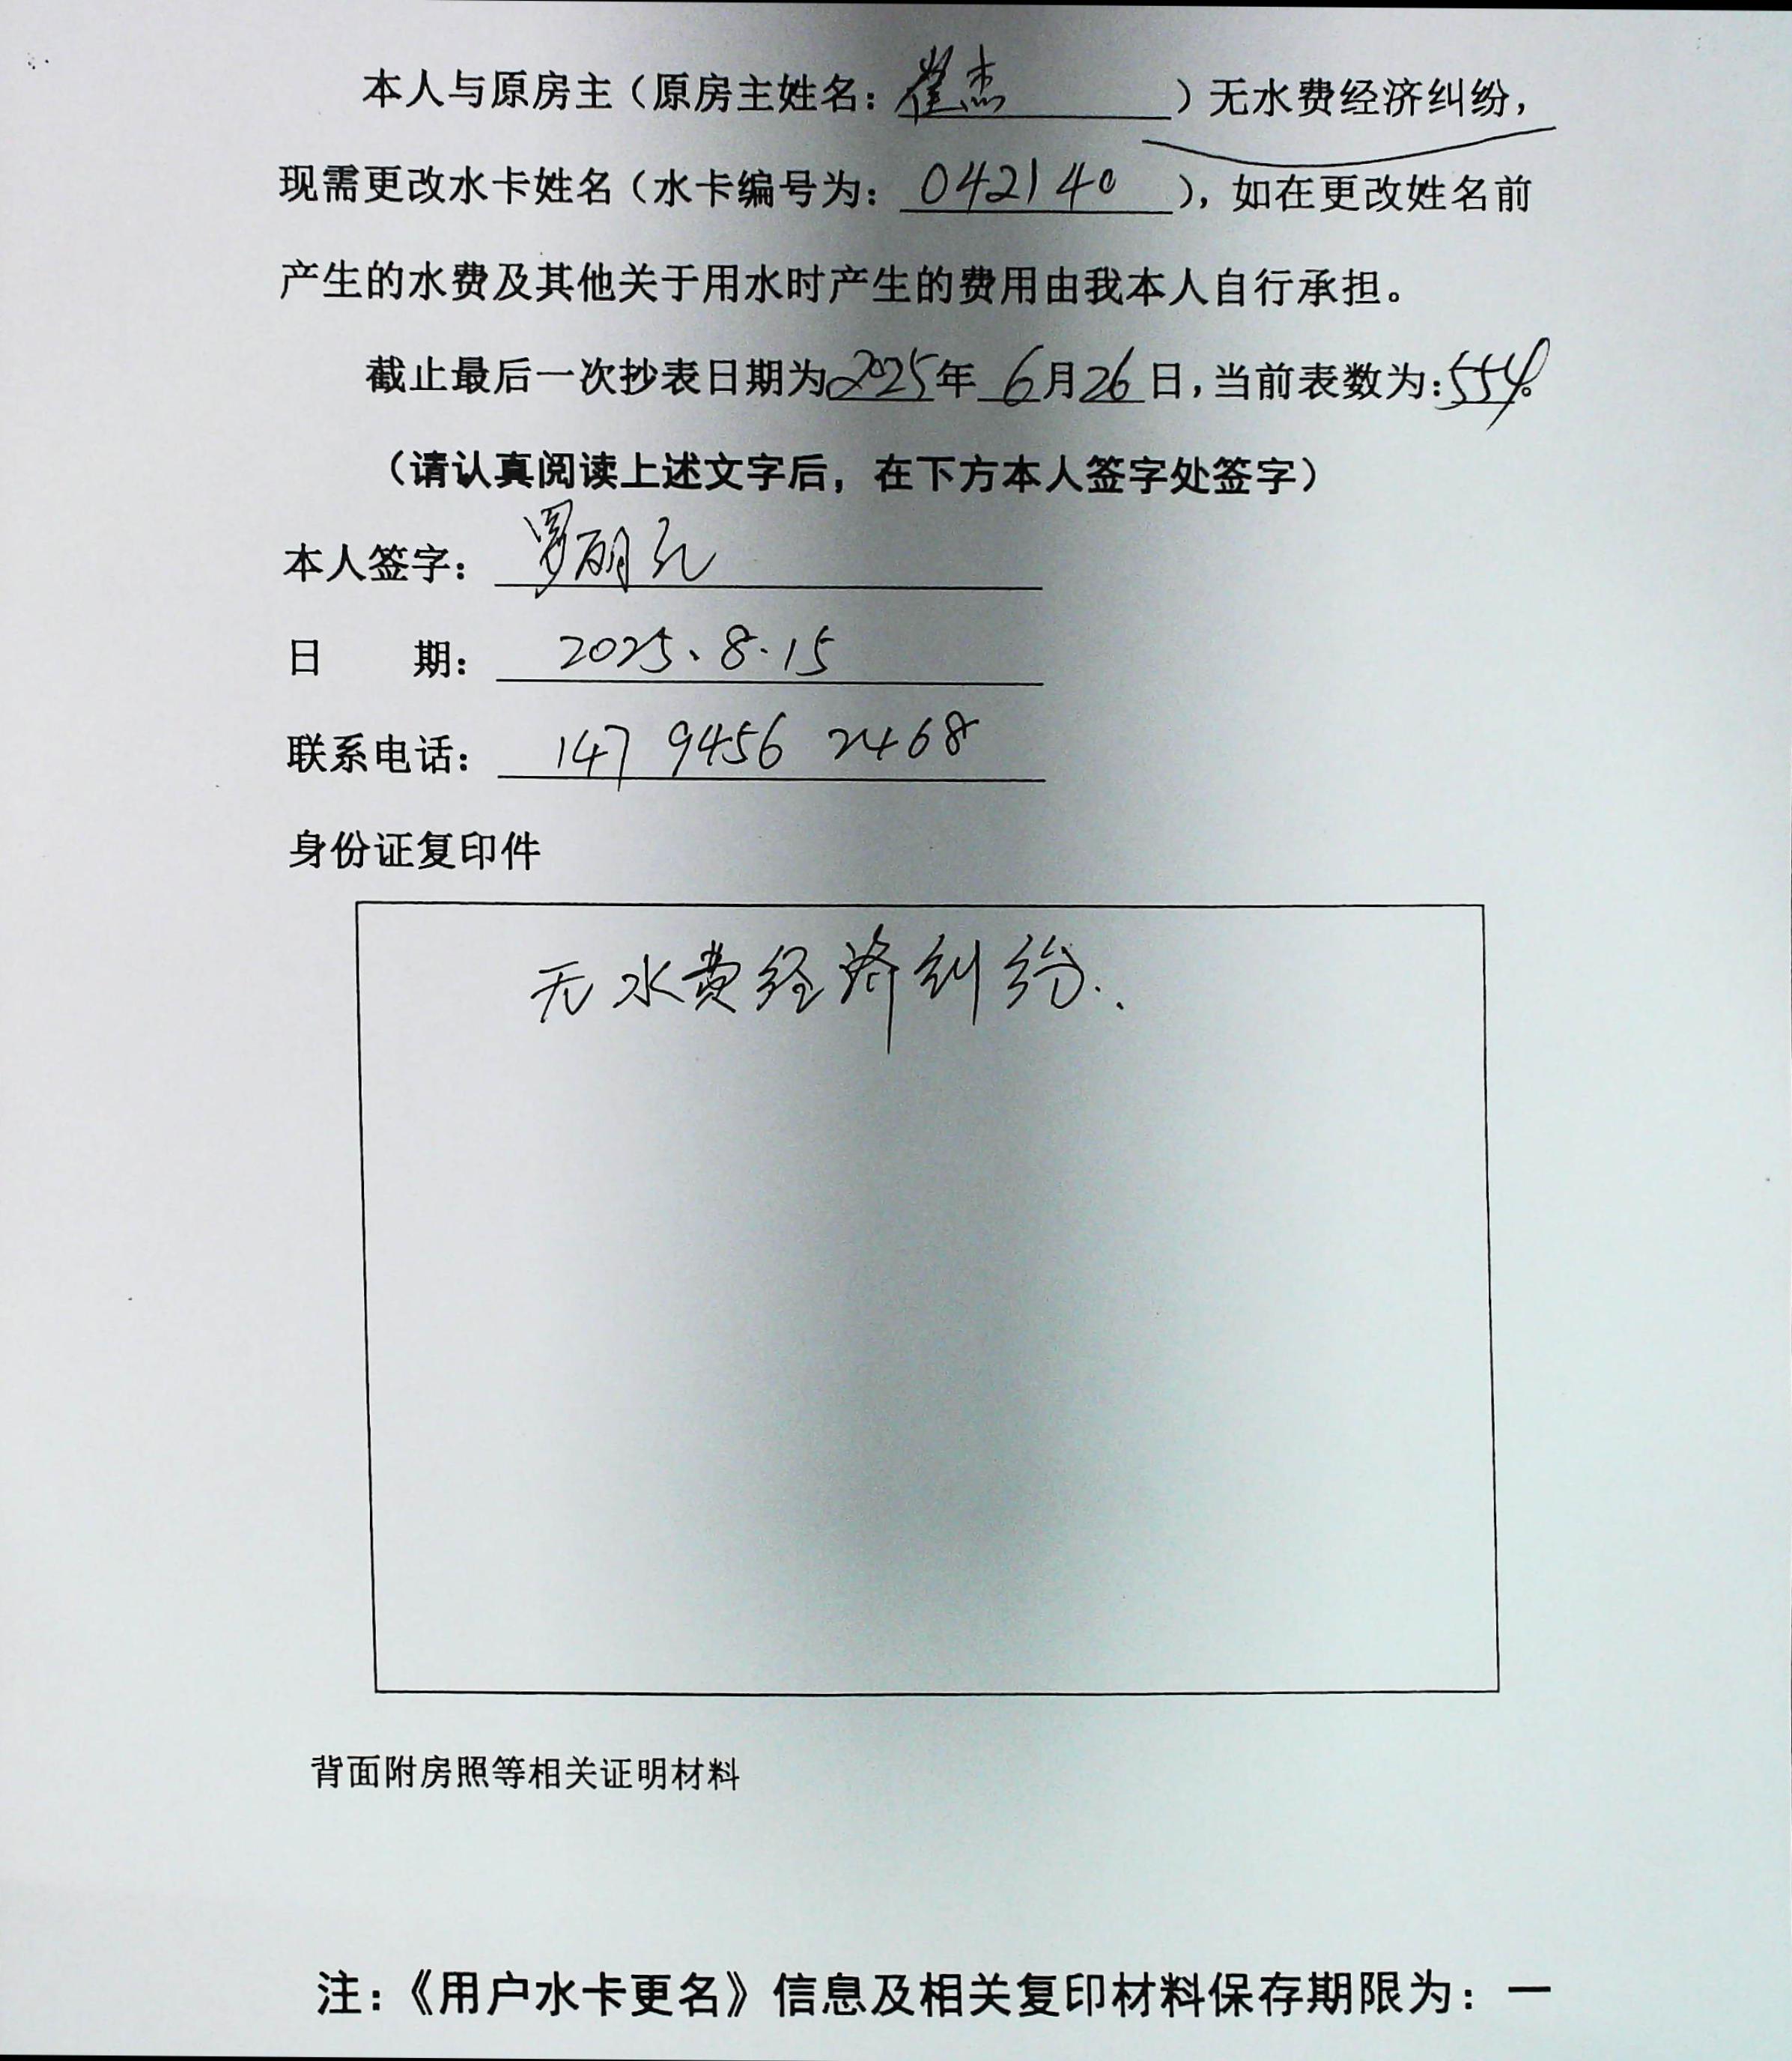 本人与原房主（原房主姓名：崔杰）无水费经济纠纷，
现需更改水卡姓名（水卡编号为：042140），如在更改姓名前
产生的水费及其他关于用水时产生的费用由我本人自行承担。
截止最后一次抄表日期为2025年6月26日，当前表数为：554。
（请认真阅读上述文字后，在下方本人签字处签字）
本人签字：罗
日 期：2025、8.15
联系电话：147 9456 2468
身份证复印件
无水费经济纠纷..
背面附房照等相关证明材料
注：《用户水卡更名》信息及相关复印材料保存期限为：一